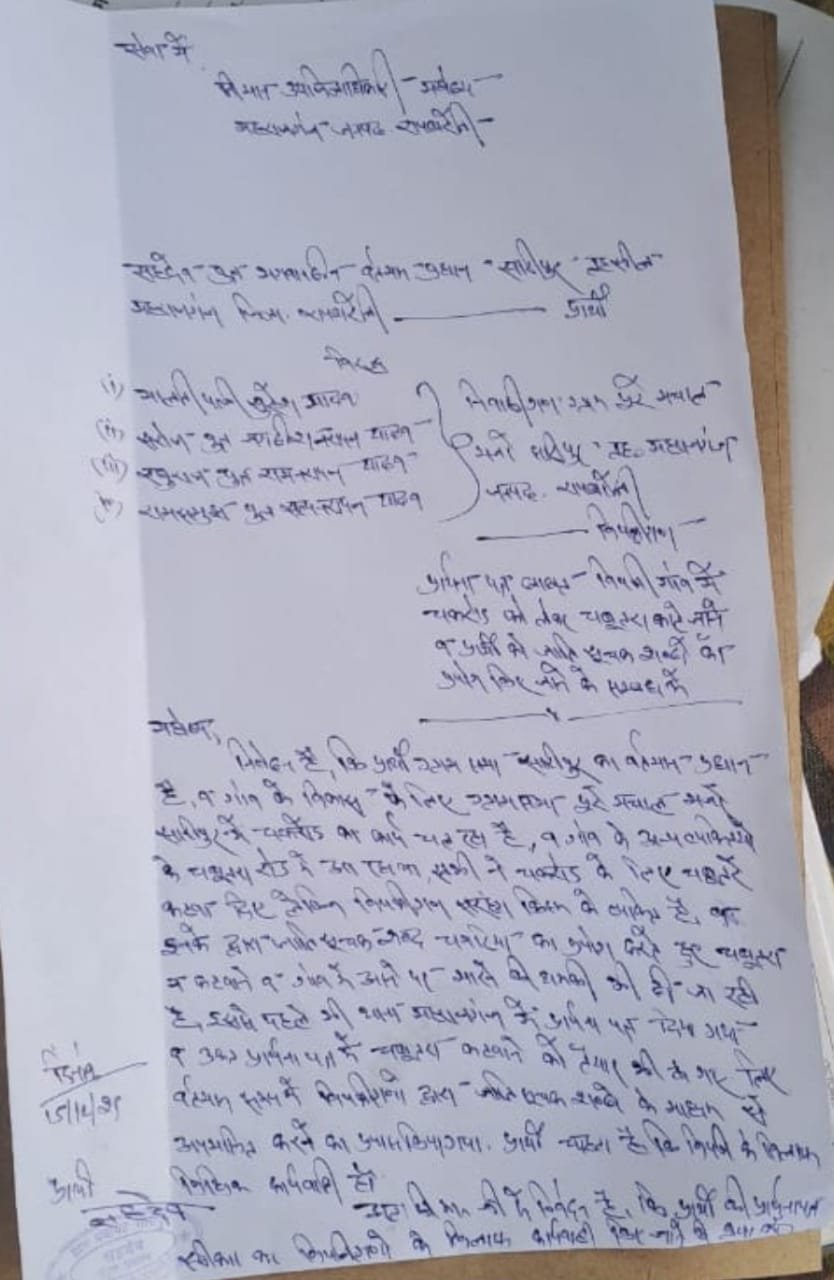 सेवा में
श्रीमान उपजिलाधिकारी महोदय
महराजगंज जनपद रायबरेली
सहदेव पुत्र वर्तमान प्रधान सारीपुर तहसील
महराजगंज जिला रायबरेली ——— प्रार्थी
विरुद्ध
(i) मालती पत्नी सुरेश यादव
(ii) सरोज पुत्र यादव
(iii) पुत्र रामनरायन यादव
(iv) पुत्र सत्यनरायन यादव
निवासीगण ग्राम पूरे मचाल
मजरे सारीपुर तह. महराजगंज
जनपद. रायबरेली
——— विपक्षीगण
प्रार्थना पत्र विपक्षी गांव में
चकरोड को लेकर चबूतरा काटे जाने
व प्रार्थी को जाति सूचक शब्दों का
प्रयोग किए जाने के सम्बन्ध में
महोदय,
निवेदन है, कि प्रार्थी ग्राम सभा सारीपुर का वर्तमान प्रधान
है, व गांव के विकास के लिए ग्रामसभा पूरे मचाल मजरे
सारीपुर में चकरोड का कार्य चल रहा है, व गांव के अन्य व्यक्तियों
के चबूतरा रोड में आ रहा था, सभी ने चकरोड के लिए चबूतरे
कटवा दिए लेकिन विपक्षीगण सरहंग किस्म के व्यक्ति है,
इनके द्वारा जाति सूचक शब्द का प्रयोग करते हुए चबूतरा
न कटवाने व गांव में आने पर मारने की धमकी भी दी जा रही
है, इससे पहले भी थाना महराजगंज में प्रार्थना पत्र दिया गया
व उक्त प्रार्थना पत्र में चबूतरा कटवाने को तैयार भी हो गए लेकिन
वर्तमान समय में विपक्षीगणों द्वारा जाति सूचक शब्दों के माध्यम से
अपमानित करने का प्रयास किया गया. प्रार्थी चाहता है कि विपक्षी के खिलाफ
कार्यवाही हो
अतः श्रीमान जी से निवेदन है, कि प्रार्थी की प्रार्थनापत्र
स्वीकार कर विपक्षीगणों के खिलाफ कार्यवाही किए जाने की कृपा करें
दिनांक
प्रार्थी
सहदेव